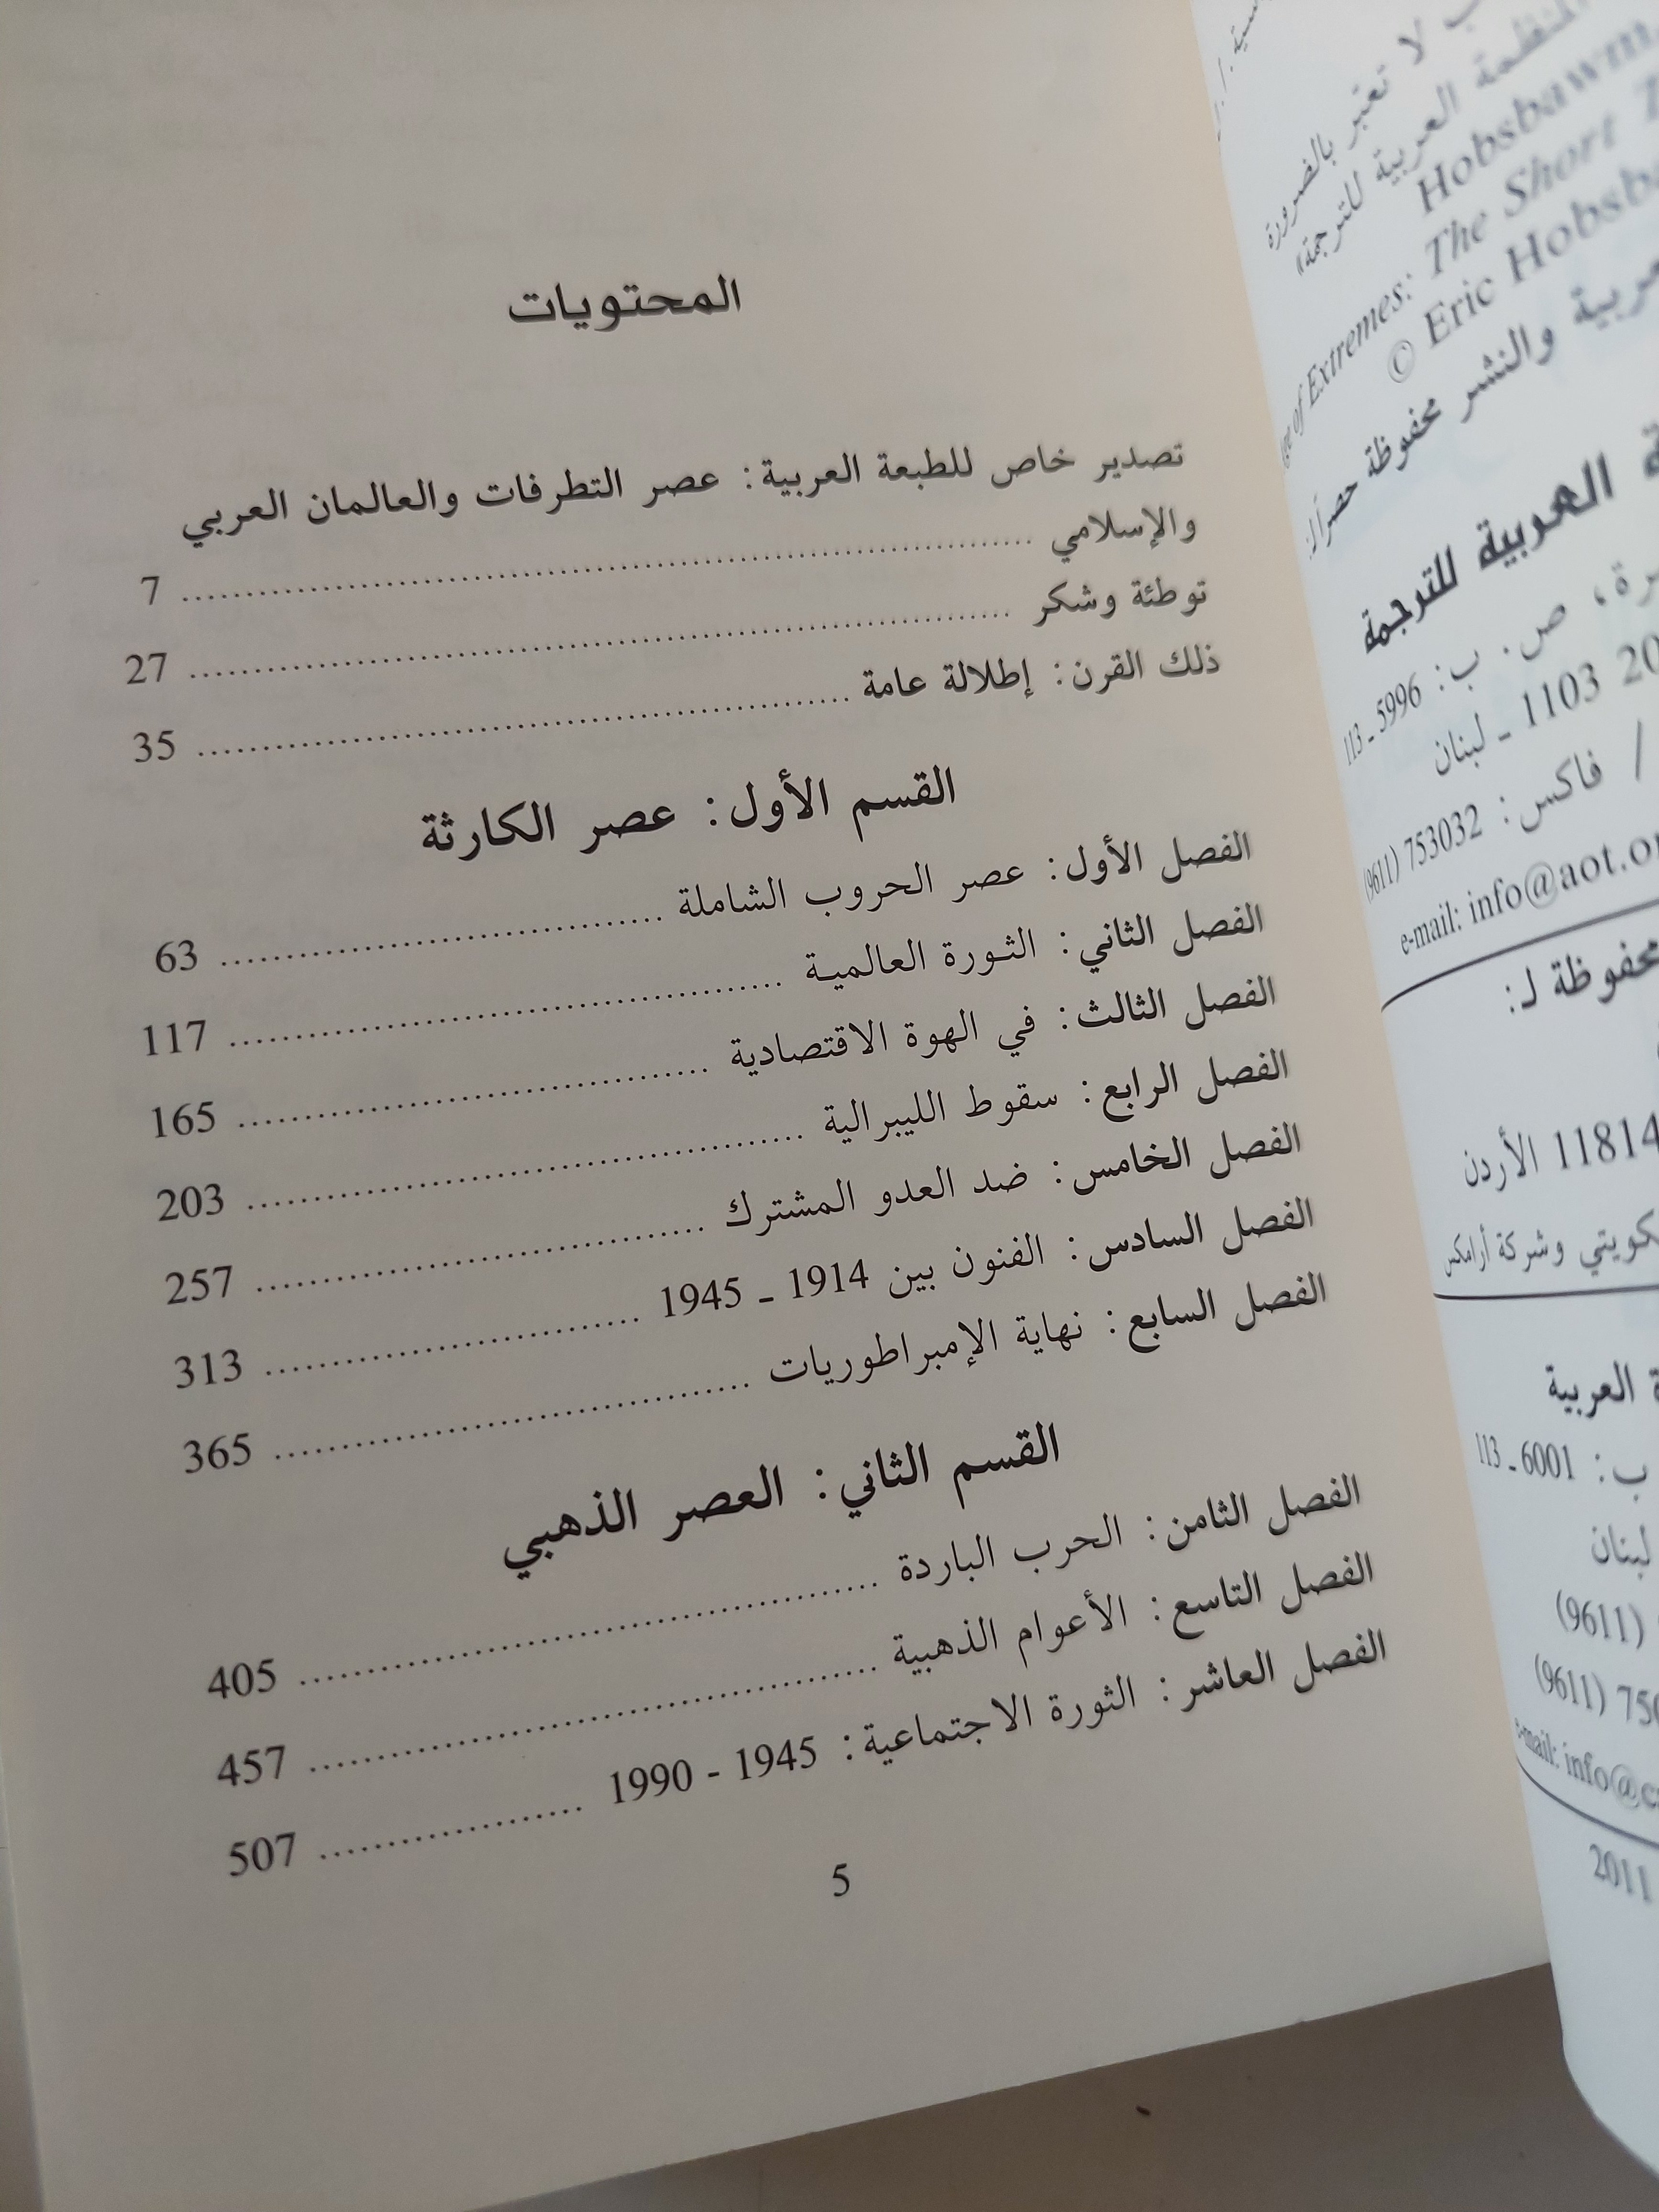 المحتويات
تصدير خاص للطبعة العربية: عصر التطرفات والعالمان العربي
والإسلامي ........ 7
توطئة وشكر ........ 27
ذلك القرن: إطلالة عامة ........ 35
القسم الأول: عصر الكارثة
الفصل الأول: عصر الحروب الشاملة ........ 63
الفصل الثاني: الثورة العالمية ........ 117
الفصل الثالث: في الهوة الاقتصادية ........ 165
الفصل الرابع: سقوط الليبرالية ........ 203
الفصل الخامس: ضد العدو المشترك ........ 257
الفصل السادس: الفنون بين 1914 ـ 1945 ........ 313
الفصل السابع: نهاية الإمبراطوريات ........ 365
القسم الثاني: العصر الذهبي
الفصل الثامن: الحرب الباردة ........ 405
الفصل التاسع: الأعوام الذهبية ........ 457
الفصل العاشر: الثورة الاجتماعية: 1945 - 1990 ........ 507
5
لا تعتبر بالضرورة
المنظمة العربية للترجمة»
Hobsbawm,
of Extremes: The Short
© Eric
والنشر محفوظة حصراً
العربية للترجمة
ص. ب: 5996 ـ 113
1103 ـ لبنان
/ فاكس: 753032 (9611)
e-mail: info@aot.or
محفوظة لـ:
11814 الأردن
وشركة أرامكس
العربية
ب: 6001 ـ 113
لبنان
(9611)
(9611)
e-mail: info@c
2011